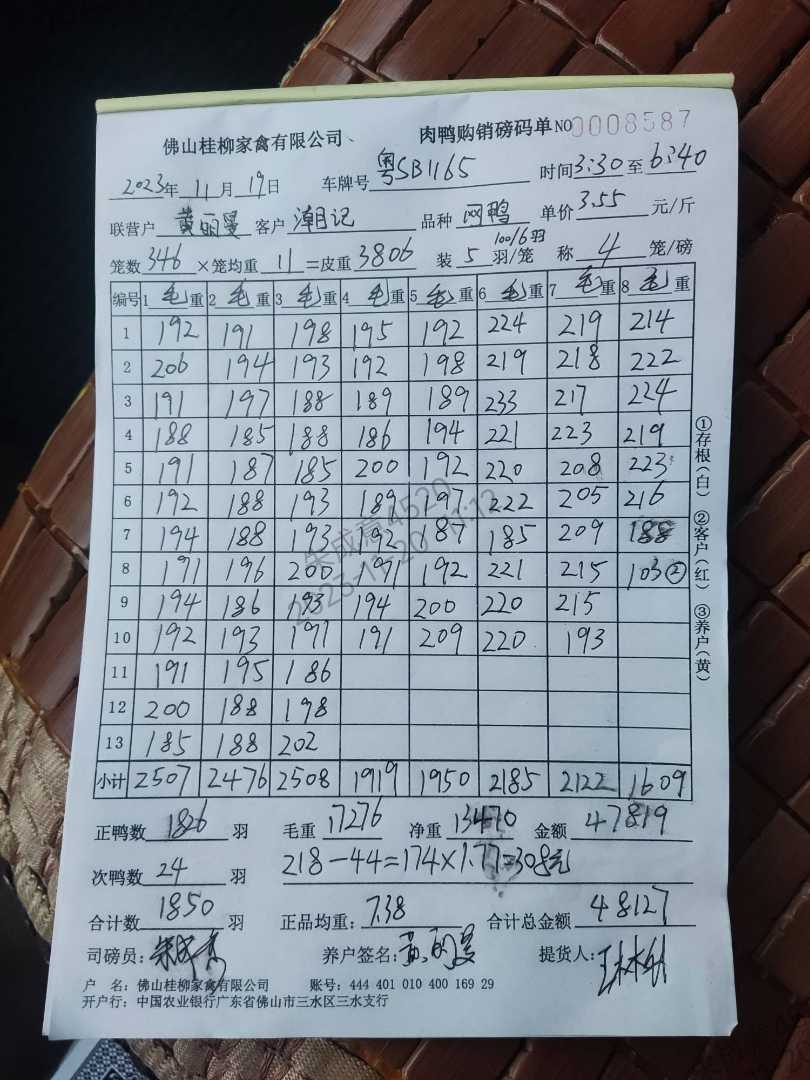 佛山桂柳家禽有限公司、 肉鸭购销磅码单 NO 0008587
2023年 11月 19日 车牌号 粤SB1165 时间 3:30 至 6:40
联营户 黄丽曼 客户 潮记 品种 网鸭 单价 3.55 元/斤
100/6羽
笼数 346 ×笼均重 11 =皮重 3806 装 5 羽/笼 称 4 笼/磅
编号 1 毛重 2 毛重 3 毛重 4 毛重 5 毛重 6 毛重 7 毛重 8 毛重
1 192 191 198 195 192 224 219 214
2 206 194 193 192 198 219 218 222
3 191 197 188 189 189 233 217 224
4 188 185 188 186 194 221 223 219
5 191 187 185 200 192 220 208 223
6 192 188 193 189 197 222 205 216
7 194 188 193 192 187 185 209 188
8 191 196 200 191 192 221 215 103②
9 194 186 193 194 200 220 215
10 192 193 191 191 209 220 193
11 191 195 186
12 200 188 198
13 185 188 202
小计 2507 2476 2508 1919 1950 2185 2122 1609
正鸭数 1826 羽 毛重 17276 净重 13470 金额 47819
次鸭数 24 羽 218-44=174×1.77=308元
合计数 1850 羽 正品均重: 7.38 合计总金额 48127
司磅员: 养户签名: 黄丽曼 提货人:
户 名: 佛山桂柳家禽有限公司 账号: 444 401 010 400 169 29
开户行: 中国农业银行广东省佛山市三水区三水支行
①存根(白) ②客户(红) ③养户(黄)
朱成高4520
2023-11-20 11:12